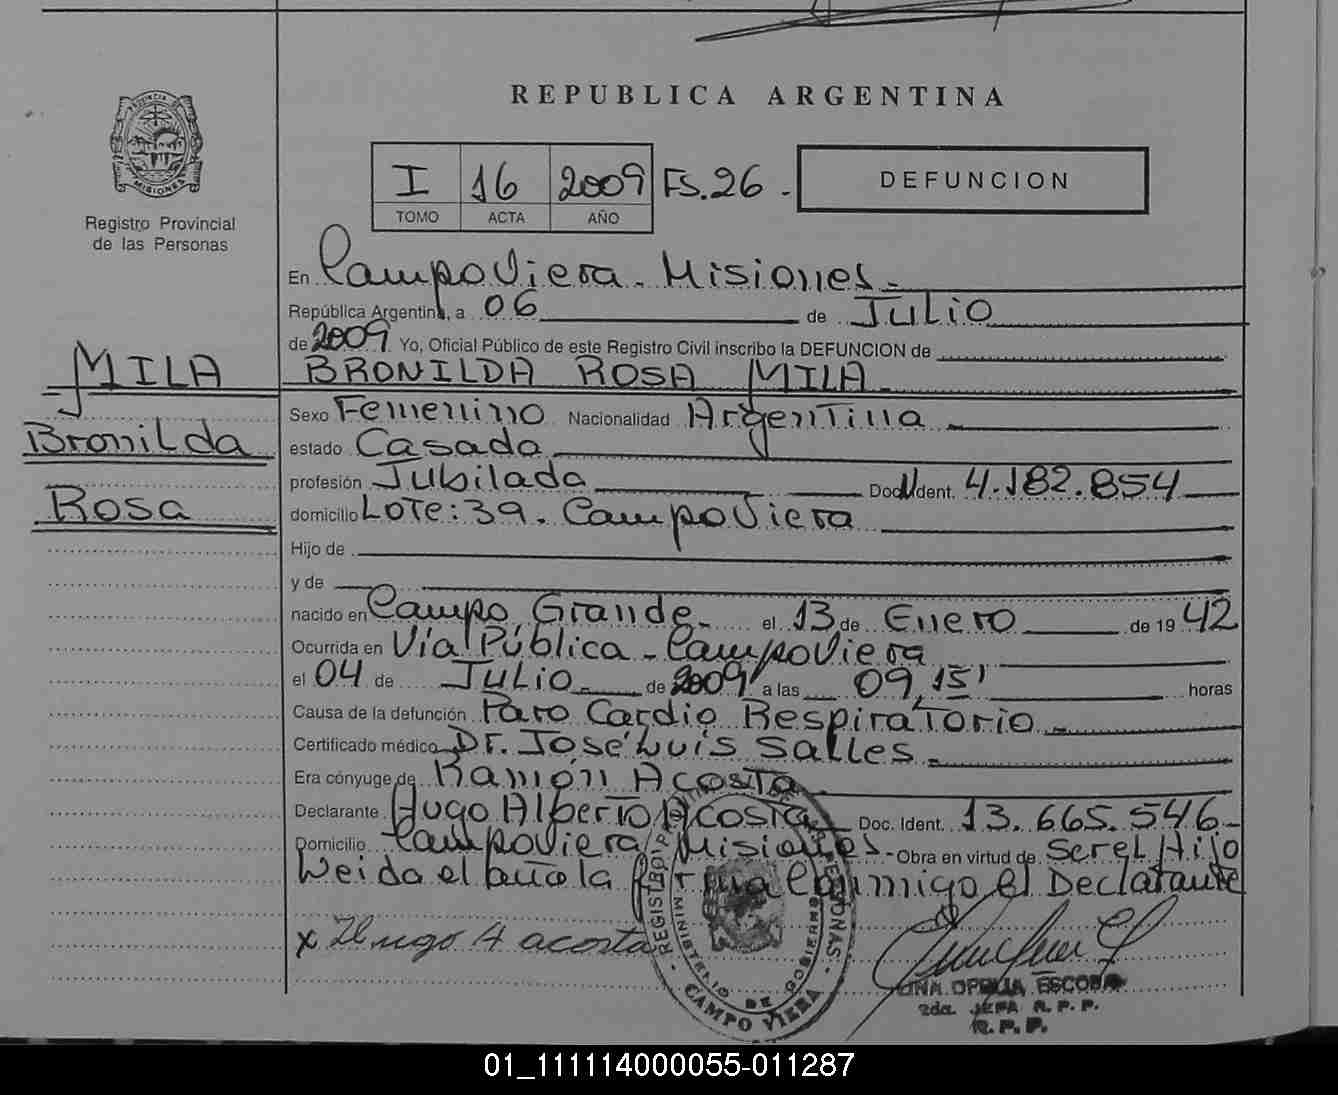 REPUBLICA ARGENTINA
PROVINCIA DE
MISIONES
Registro Provincial
de las Personas
I 16 2009 FS. 26 -
TOMO ACTA AÑO
DEFUNCION
En Campo Viera - Misiones -
República Argentina, a 06 de Julio
de 2009. Yo, Oficial Público de este Registro Civil inscribo la DEFUNCION de
MILA
BRONILDA ROSA MILA
Bronilda
Rosa
Sexo Femenino Nacionalidad Argentina
estado Casada
profesión Jubilada Doc. Ident. 4.182.854
domicilio Lote: 39. Campo Viera
Hijo de
y de
nacido en Campo Grande - el 13 de Enero de 1942
Ocurrida en Vía Pública - Campo Viera
el 04 de Julio - de 2009 a las 09,15' horas
Causa de la defunción Paro Cardio Respiratorio -
Certificado médico Dr. José Luis Salles -
Era cónyuge de Ramón Acosta
Declarante Hugo Alberto Acosta Doc. Ident. 13.665.546 -
Domicilio Campo Viera Misiones - Obra en virtud de Ser el Hijo
Leida el acta la Firma Conmigo el Declarante
x Hugo A acosta
REGISTRO PROVINCIAL DE LAS PERSONAS
MINISTERIO DE GOBIERNO
- CAMPO VIERA -
OFELIA ESCOBAR
2da. JEFA R. P. P.
R. P. P.
01_111114000055-011287